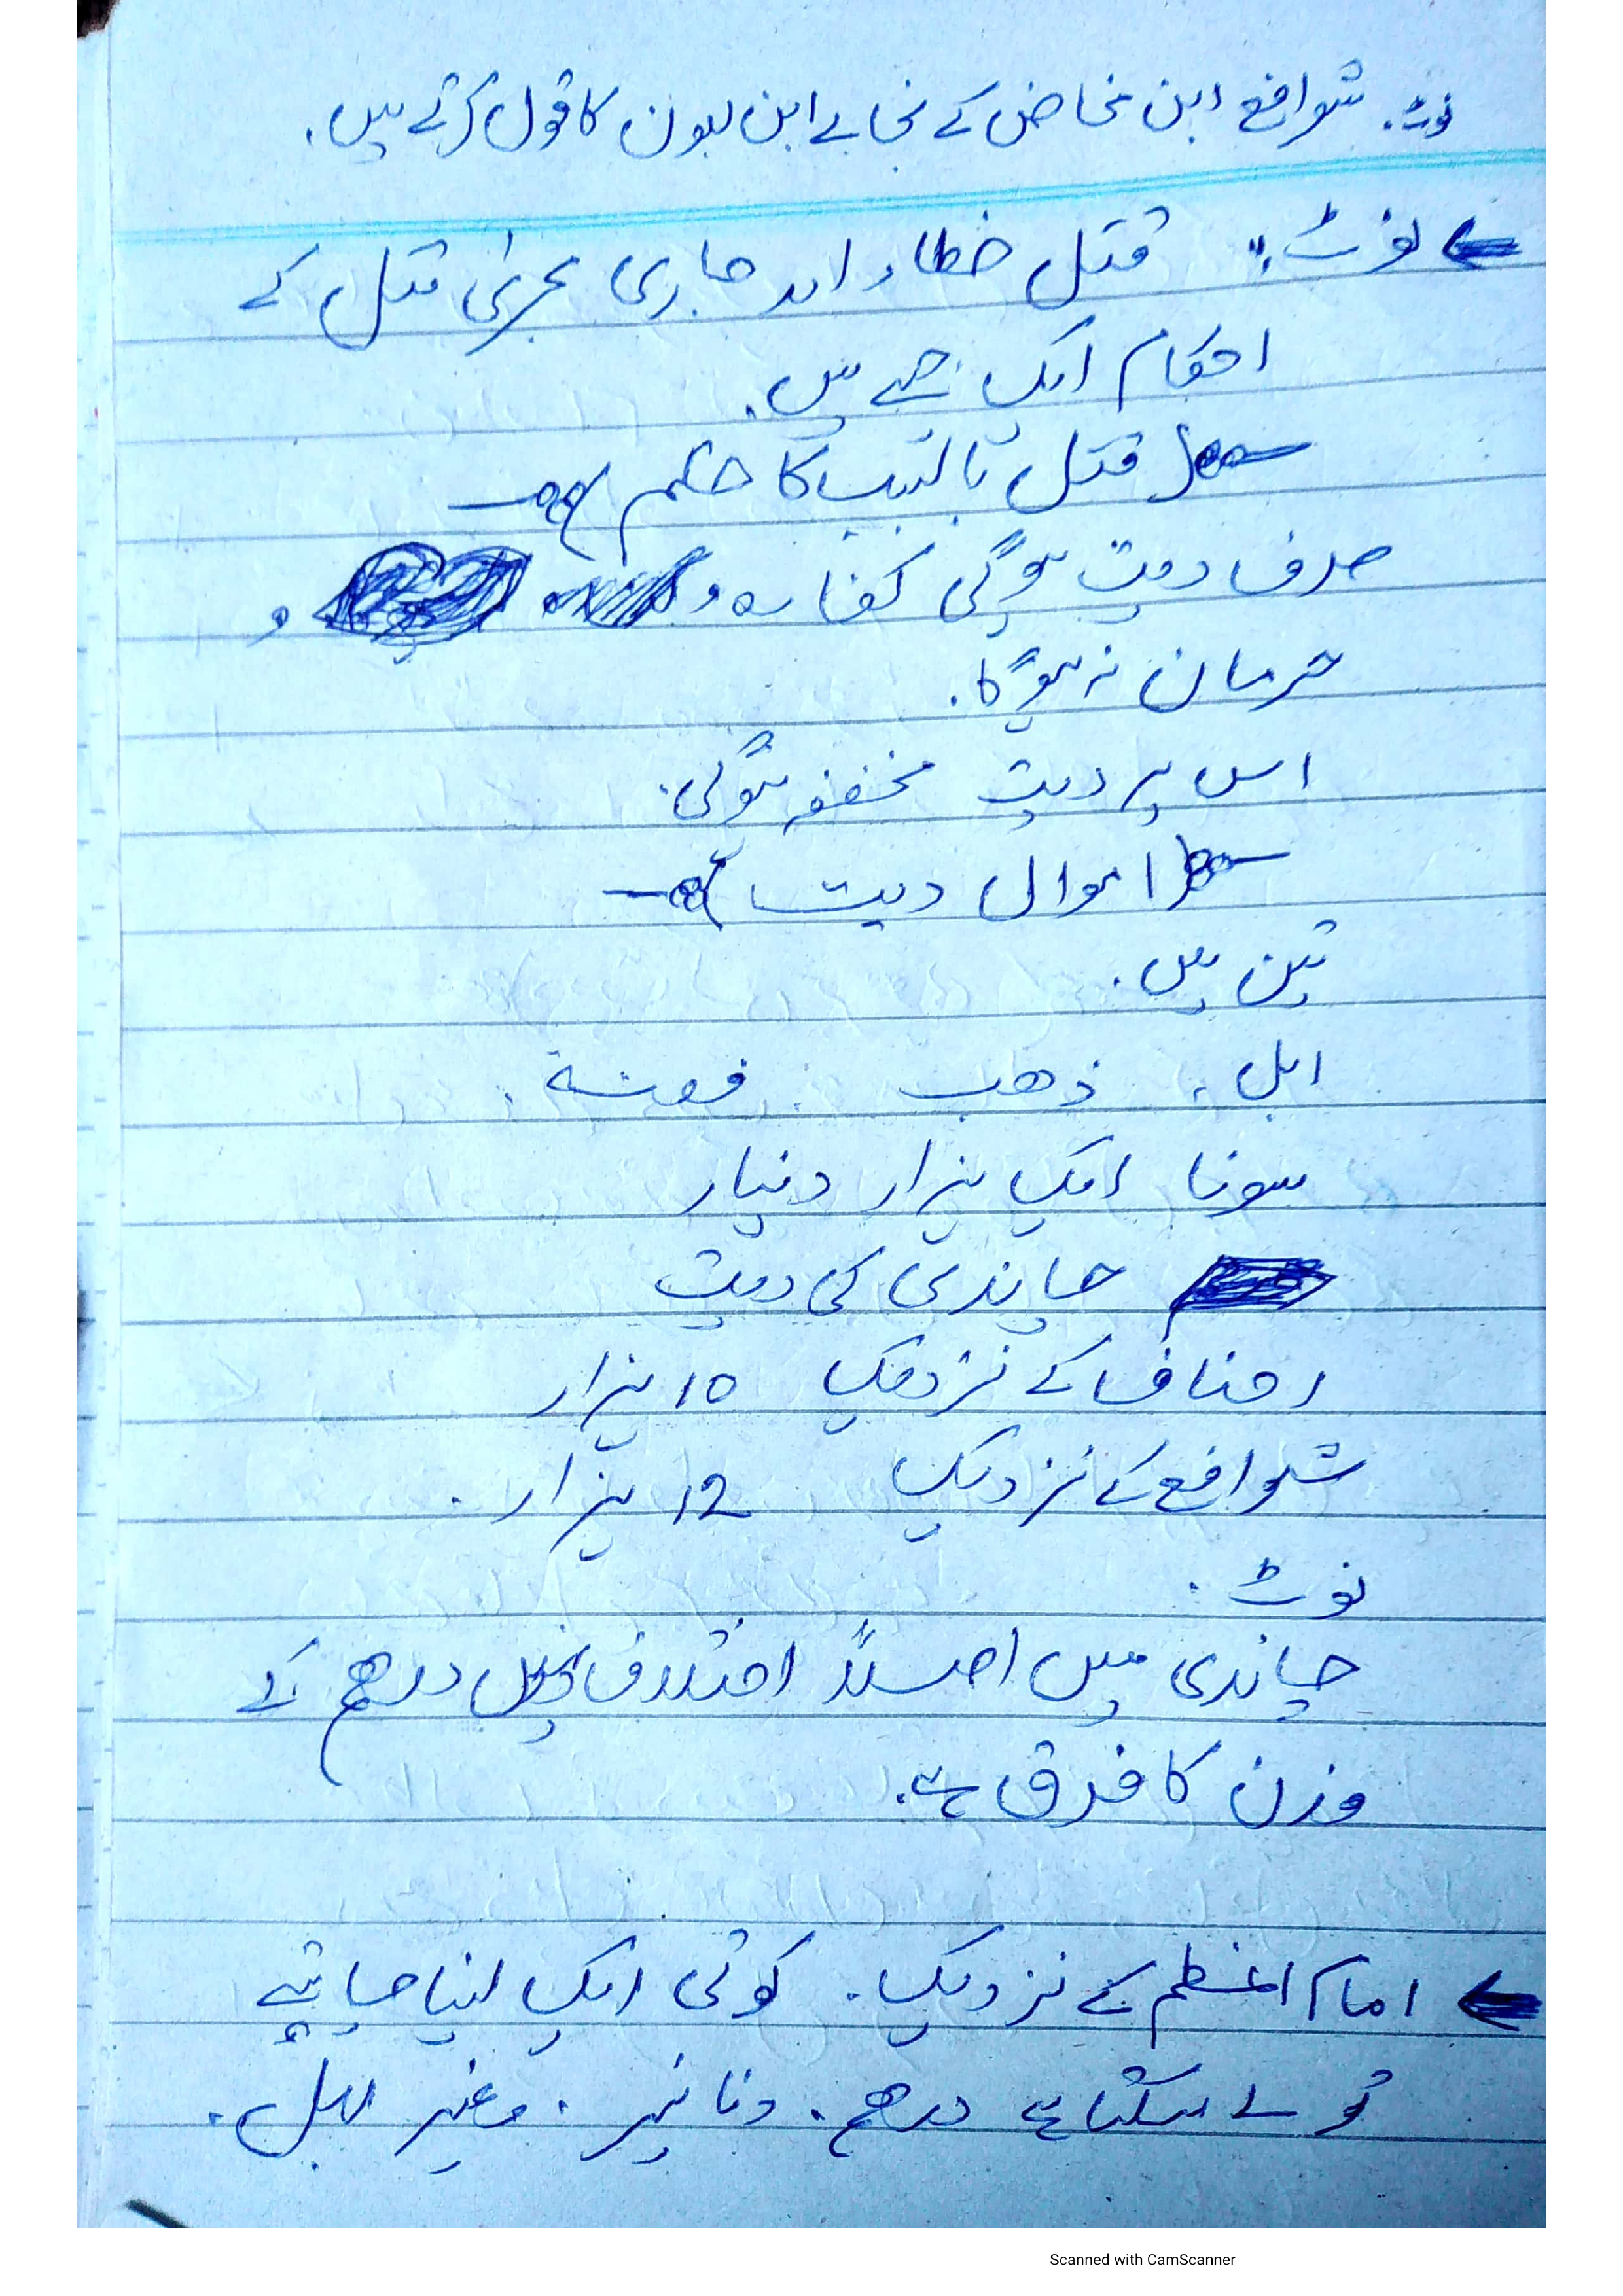 نوٹ۔ شوافع ابن مخاض کے بجائے ابن لبون کا قول کرتے ہیں۔
نوٹ:۔ قتل خطاء اور جاری مجری قتل کے
احکام ایک جیسے ہیں۔
قتل بالتسبب کا حکم
صرف دیت ہوگی کفارہ و
حرمان نہ ہوگا۔
اس پر دیت مخففہ ہوگی۔
اموال دیت
تین ہیں۔
ابل، ذھب، فضة۔
سونا ایک ہزار دینار
چاندی کی دیت
احناف کے نزدیک 10 ہزار
شوافع کے نزدیک 12 ہزار۔
نوٹ۔
چاندی میں اصلاً اختلاف درھم کے
وزن کا فرق ہے۔
امام اعظم کے نزدیک۔ کوئی ایک لینا چاہیے
تو لے سکتا ہے درھم۔ دنانیر۔ وغیر ابل۔
Scanned with CamScanner